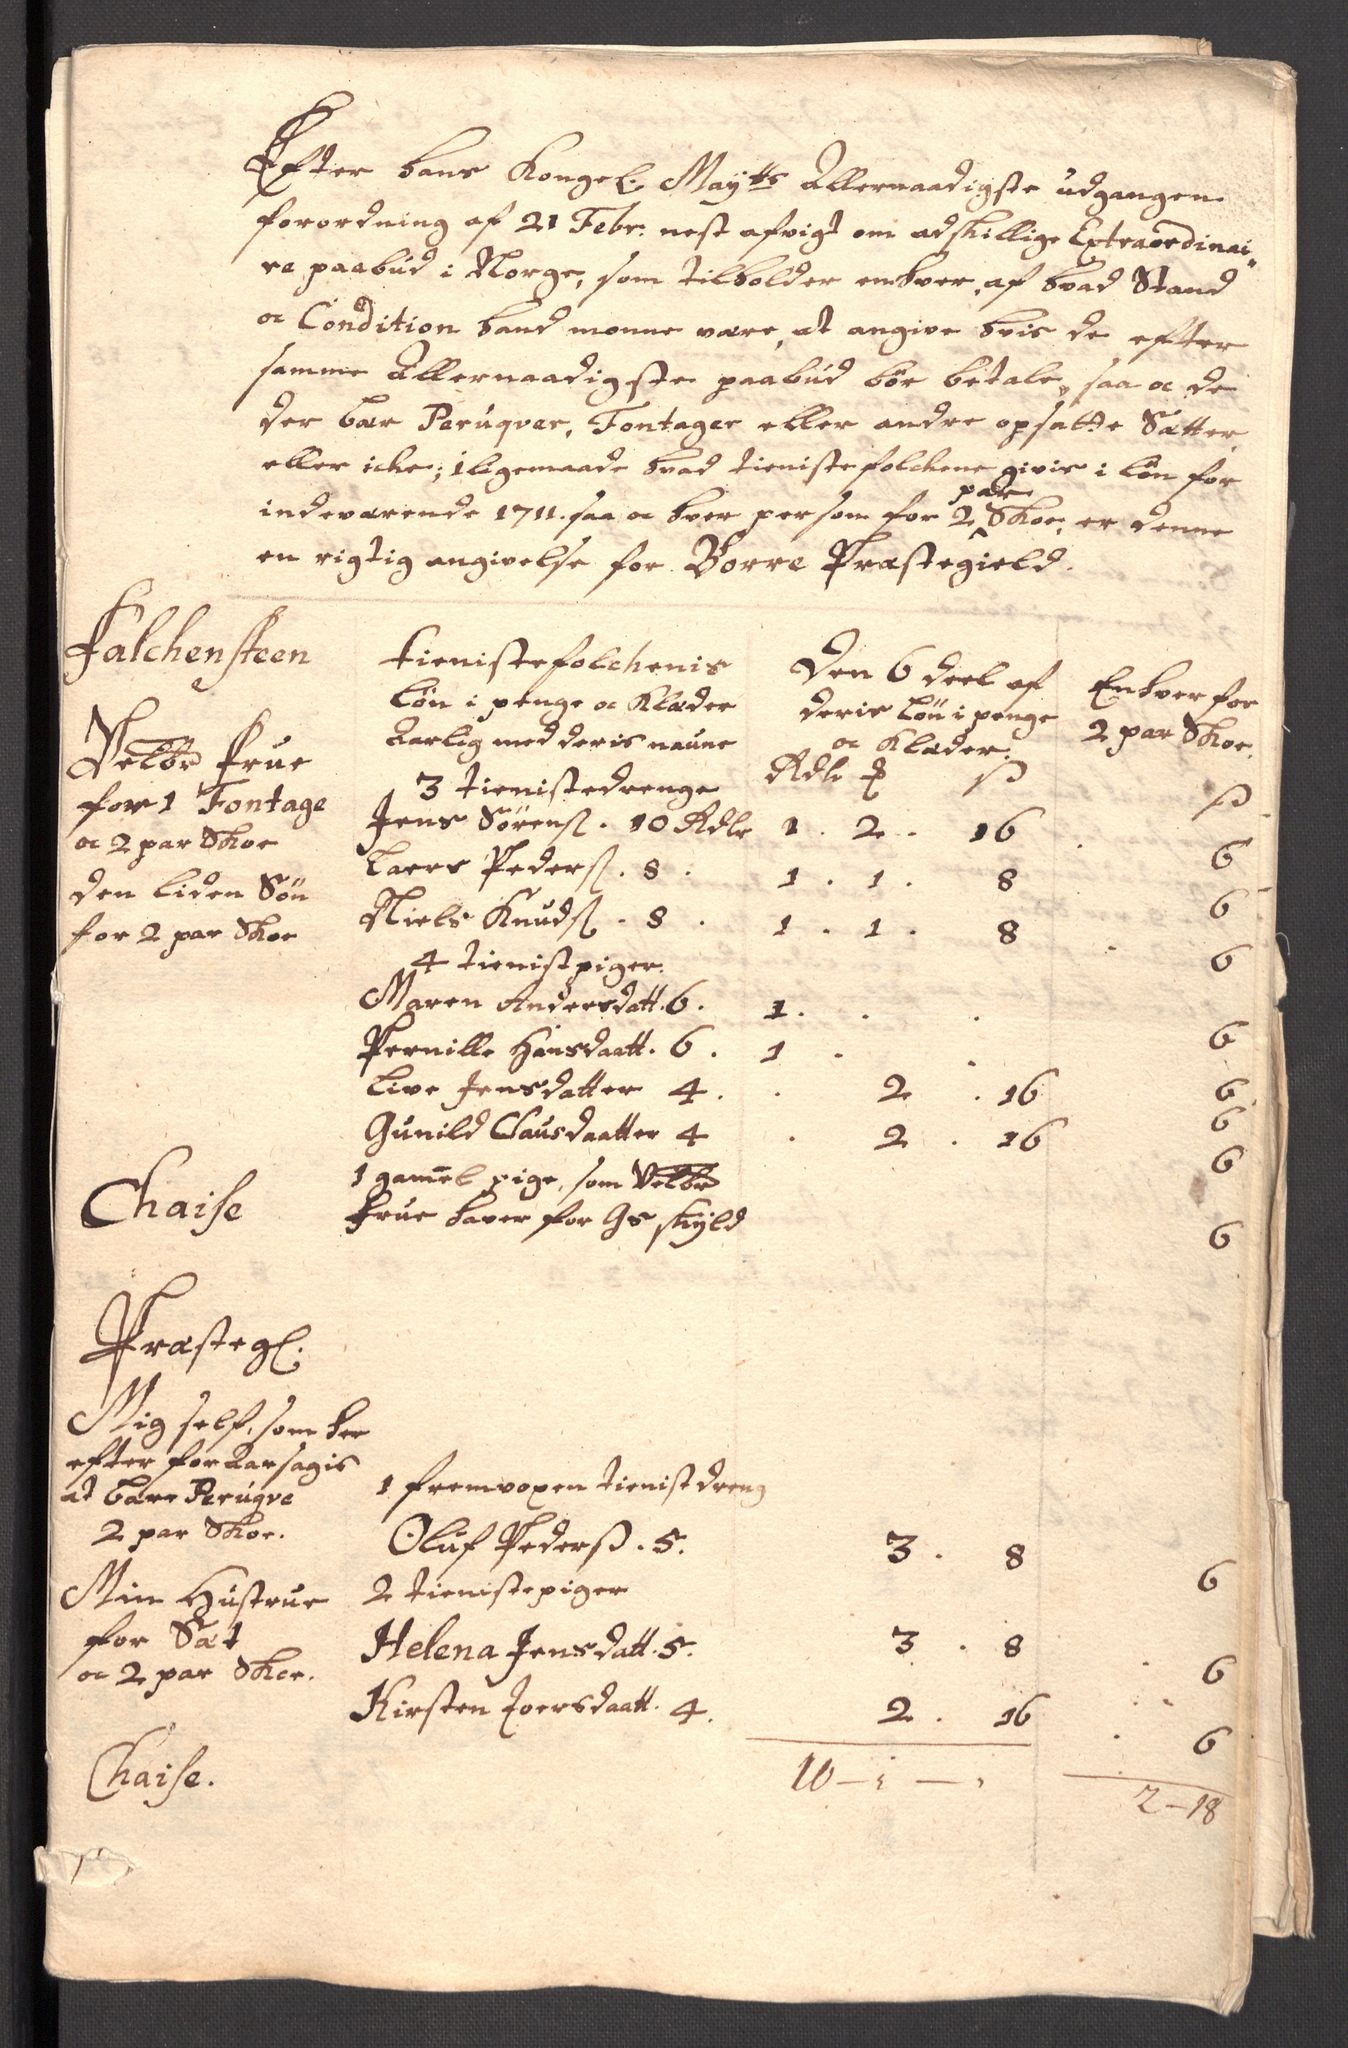 Efter hans Kongel: Maytts Allernaadigste udgangen
forordning af 21 Febr: nest afvigt om adskillige Extraordinai-
re paabud i Norge, som tilholder enhver, af hvad Stand
oc Condition hand monne være, at angive hvis de efter
samme Allernaadigste paabud bør betale, saa oc de
der bær Peruqver, Fontager eller andre opsatte Sætter
eller iche; iligemaade hvad tienistefolchene givis i løn for
par
indeværende 1711. saa oc hver person for 2 Skoe, er denne
en rigtig angivelse for Borre Præstegield.
Falchensteen
tienistefolchenis
løn i penge oc Klæder
Aarlig med deris naune
Den 6 deel af
deris løn i penge
oc Klæder.
Enhver for
2 par Skoe.
Velbr Frue
for 1 Fontage
oc 2 par Skoe
den liden Søn
for 2 par Skoe
3 tienistedrenge
Rdlr ß
ß
Jens Sørenß. 10 Rdlr 1. 2. 16 6
Laers Pederß. 8. 1. 1. 8 6
Niels Knudß. 8. 1. 1. 8 6
4 tienistpiger.
Maren Andersdatt. 6. 1. 6
Pernille Hansdaatt. 6. 1 6
Live Jensdatter 4. 2. 16 6
Gunild Clausdaatter 4 2. 16 6
Chaise
1 gamel pige, som Velbr
Frue haver for Gs skyld 6
Præstegl.
Mig self, som her
efter for Aarsagis
at bære Peruqve
2 par Skoe.
1 fremvoxen tienistdreng
Oluf Pederß. 5. 3. 8 6
Min Hustrue
for Sæt
oc 2 par Skoe.
2 tienistepiger
Helena Jensdatt. 5. 3. 8 6
Kirsten Joersdaatt. 4. 2. 16 6
Chaise.
10 – 1 –
2 – 18